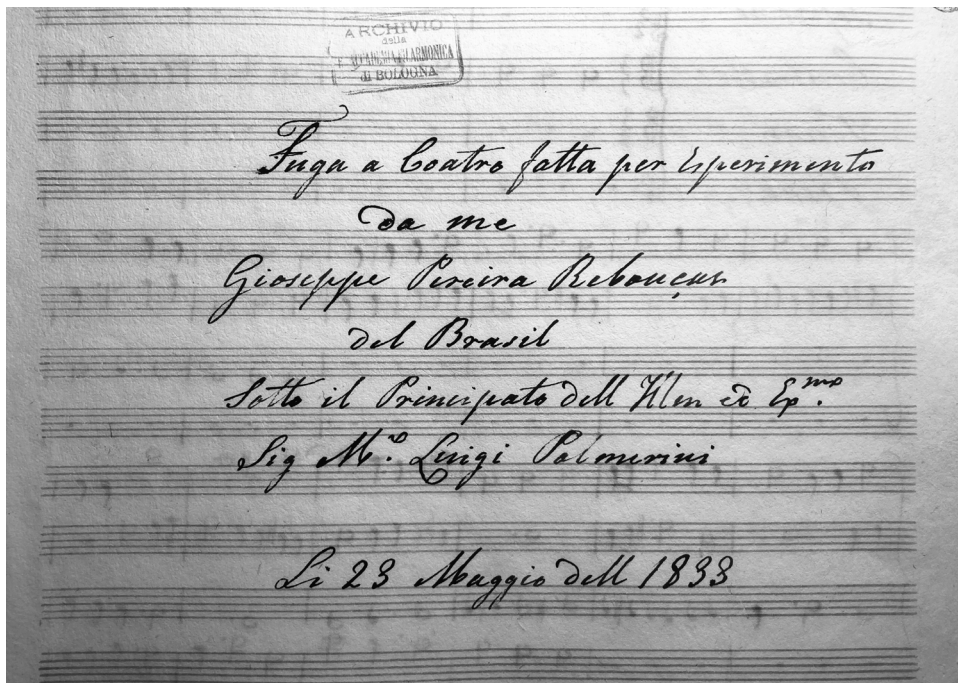 ARCHIVIO
della
R. ACCADEMIA FILARMONICA
di BOLOGNA
Fuga a Coatro fatta per Esperimento
da me
Gioseppe Pereira Rebouças
del Brasil
Sotto il Principato dell' Ill'en ed Ex.mo
Sig M.o Luigi Palmerini
Li 23 Maggio dell 1833